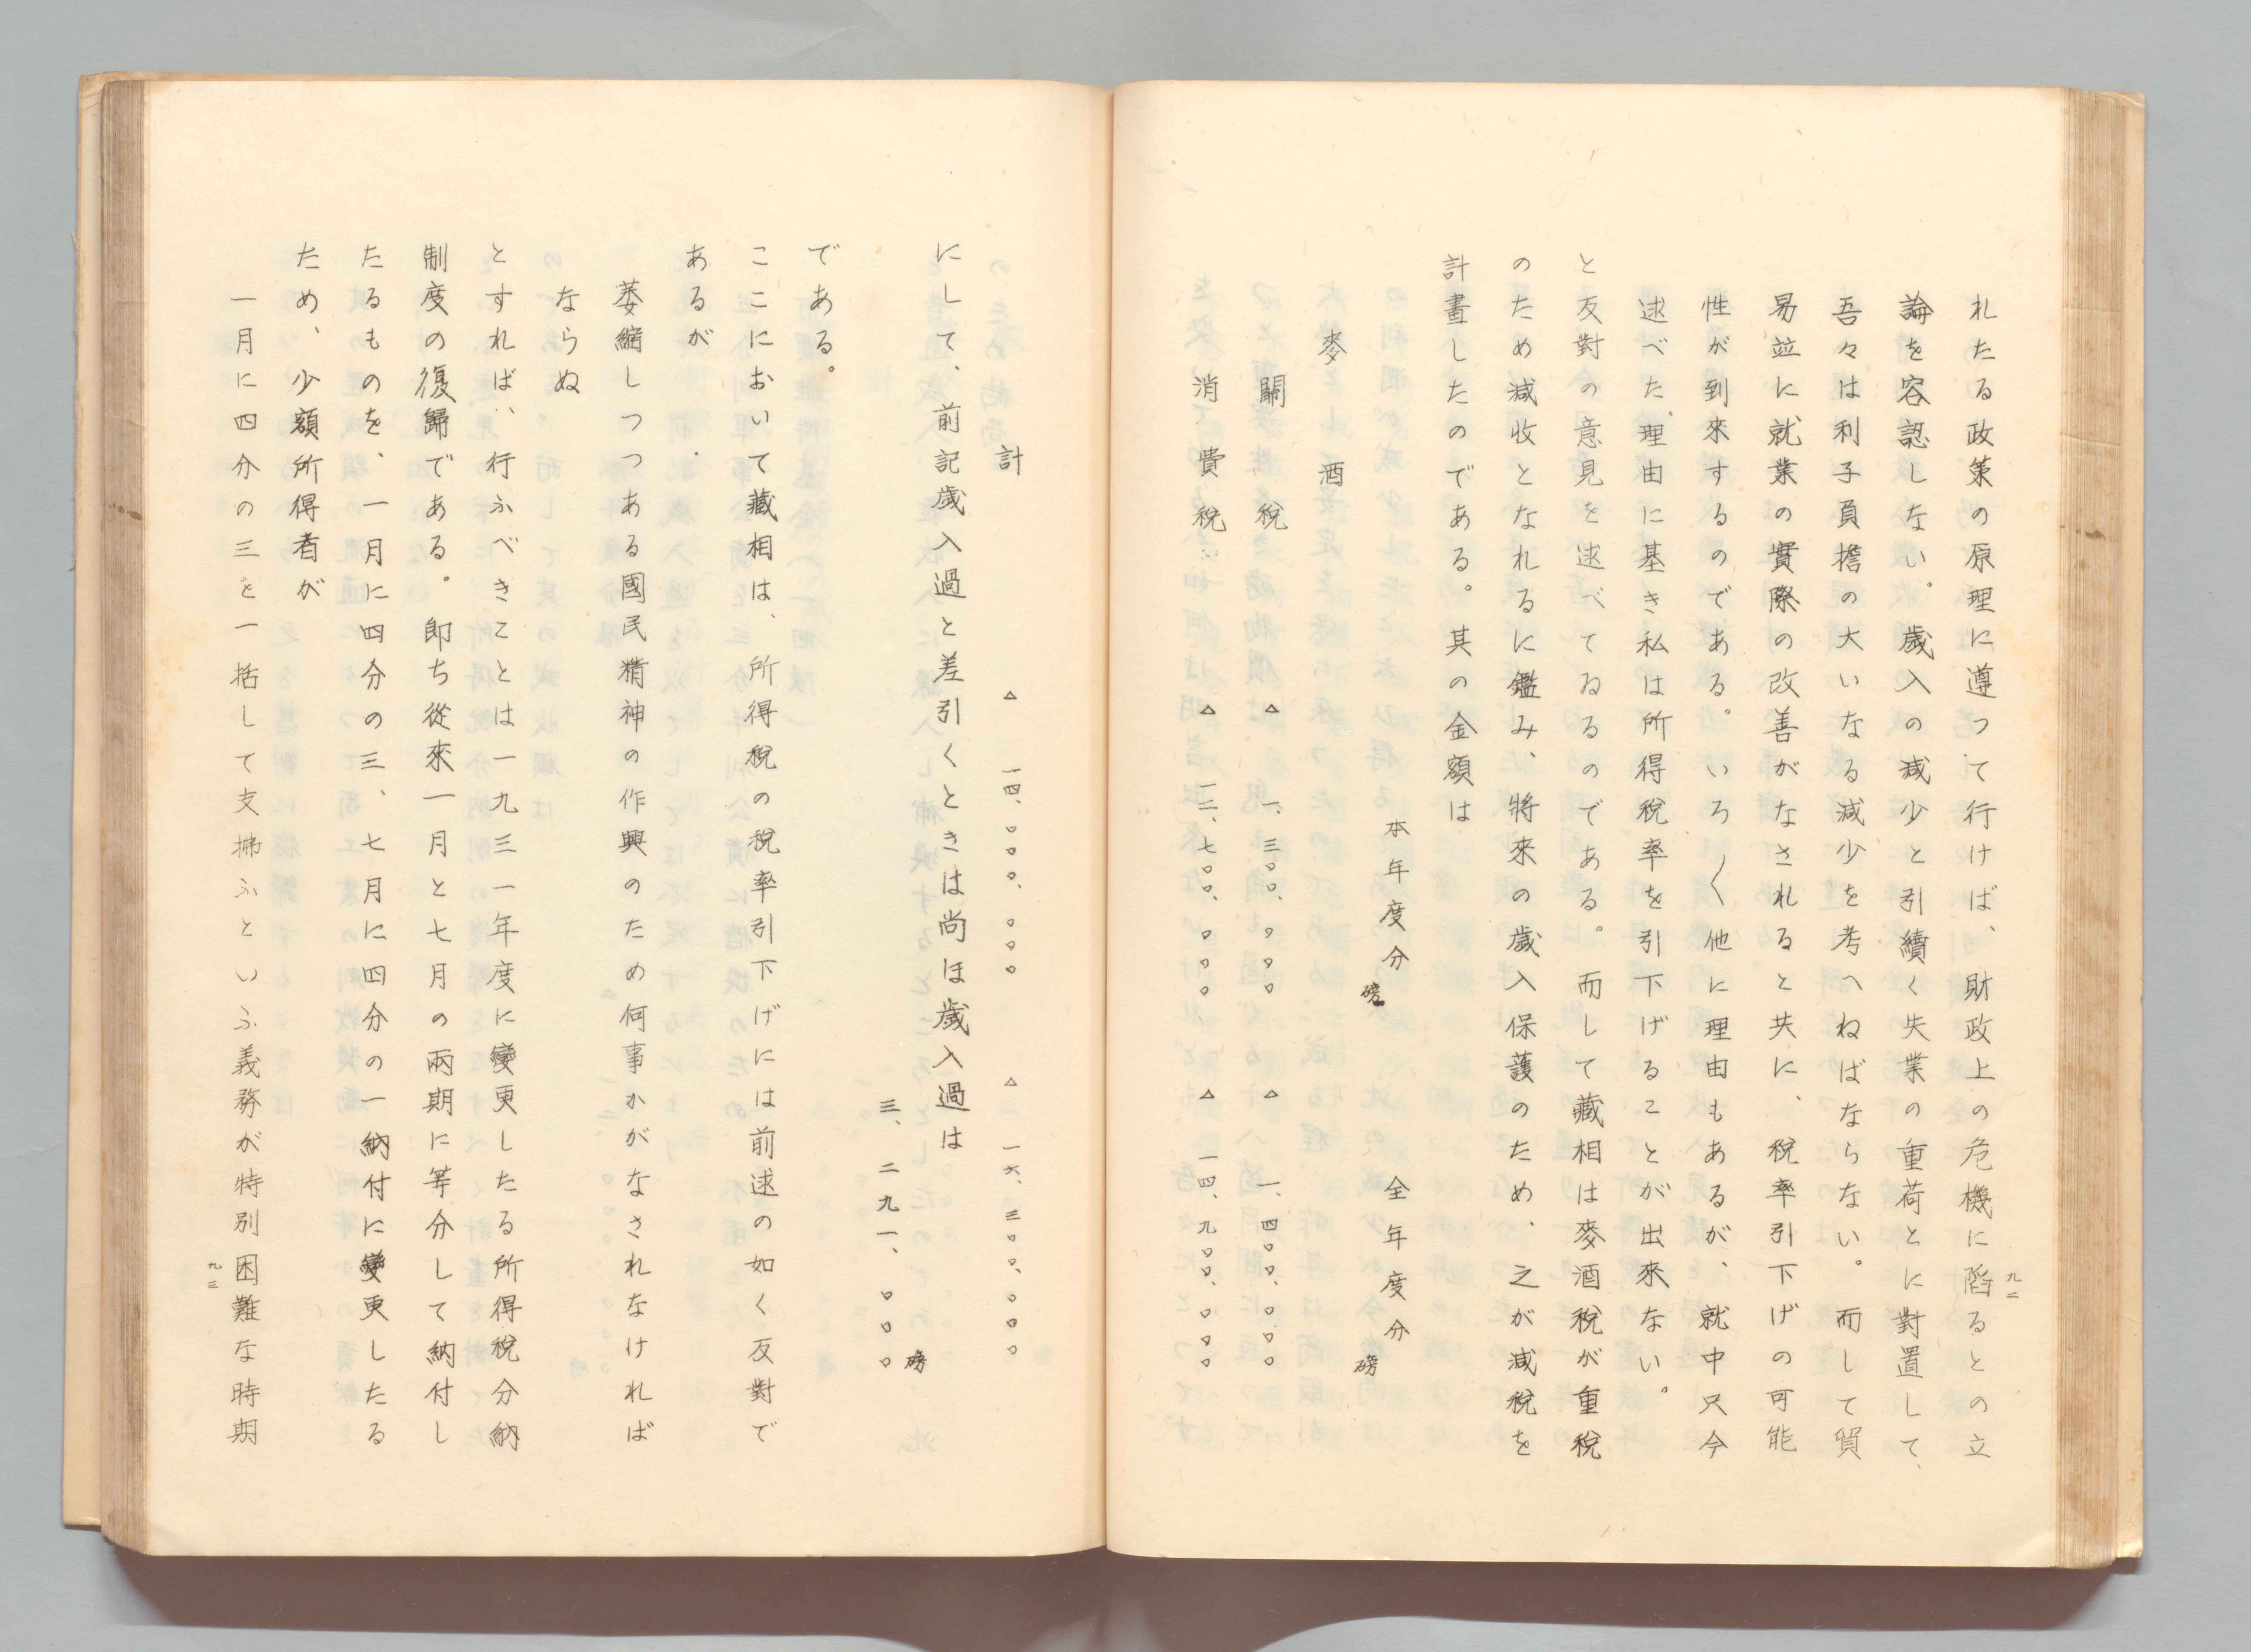 れたる政策の原理に遵って行けば、財政上の危機に陷るとの立
論を容認しない。歲入の減少と引續く失業の重荷とに對置して、
吾々は利子負擔の大いなる減少を考へねばならない。而して貿
易竝に就業の實際の改善がなされると共に、稅率引下げの可能
性が到來するのである。いろ〱他に理由もあるが、就中只今
述べた理由に基き私は所得稅率を引下げることが出來ない。
と反對の意見を述べてゐるのである。而して藏相は麥酒稅が重稅
のため減收となれるに鑑み、將來の歲入保護のため、之が減稅を
計畫したのである。其の金額は
本年度分 全年度分
磅 磅
麥酒
關稅 △ 一、三〇〇、〇〇〇 △ 一、四〇〇、〇〇〇
消費稅 △ 一二、七〇〇、〇〇〇 △ 一四、九〇〇、〇〇〇
九二
計 △ 一四、〇〇〇、〇〇〇 △ 一六、三〇〇、〇〇〇
にして、前記歲入過と差引くときは尚ほ歲入過は
磅
三、二九一、〇〇〇
である。
ここにおいて藏相は、所得稅の稅率引下げには前述の如く反對で
あるが
萎縮しつつある國民精神の作興のため何事かがなされなければ
ならぬ
とすれば、行ふべきことは一九三一年度に變更したる所得稅分納
制度の復歸である。卽ち從來一月と七月の兩期に等分して納付し
たるものを、一月に四分の三、七月に四分の一納付に變更したる
ため、少額所得者が
一月に四分の三を一括して支拂ふといふ義務が特別困難な時期
九三